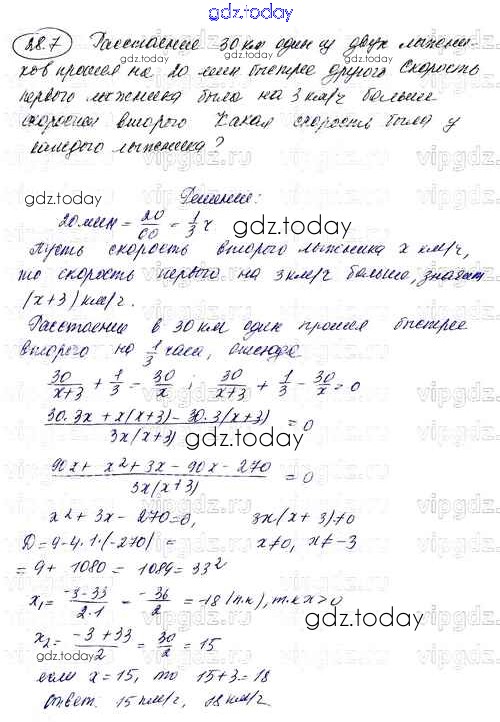 gdz.today
28.7 Расстояние 30 км один из двух лыжни-
ков прошел на 20 мин быстрее другого Скорость
первого лыжника была на 3 км/ч больше
скорости второго Какая скорость была у
каждого лыжника?
Решение:
20 мин = 20/60 = 1/3 ч
Пусть скорость второго лыжника x км/ч,
то скорость первого на 3 км/ч больше, значит
(x+3) км/ч.
Расстояние в 30 км один прошел быстрее
второго на 1/3 часа, отсюда
30/(x+3) + 1/3 = 30/x ; 30/(x+3) + 1/3 - 30/x = 0
(30·3x + x(x+3) - 30·3(x+3))/(3x(x+3)) = 0
(90x + x² + 3x - 90x - 270)/(3x(x+3)) = 0
x² + 3x - 270 = 0, 3x(x+3) ≠ 0
D = 9 - 4·1·(-270) = x ≠ 0, x ≠ -3
= 9 + 1080 = 1089 = 33²
x₁ = (-3-33)/(2·1) = -36/2 = -18 (п.к), т.к x > 0
x₂ = (-3+33)/2 = 30/2 = 15
если x = 15, то 15+3 = 18
ответ: 15 км/ч, 18 км/ч